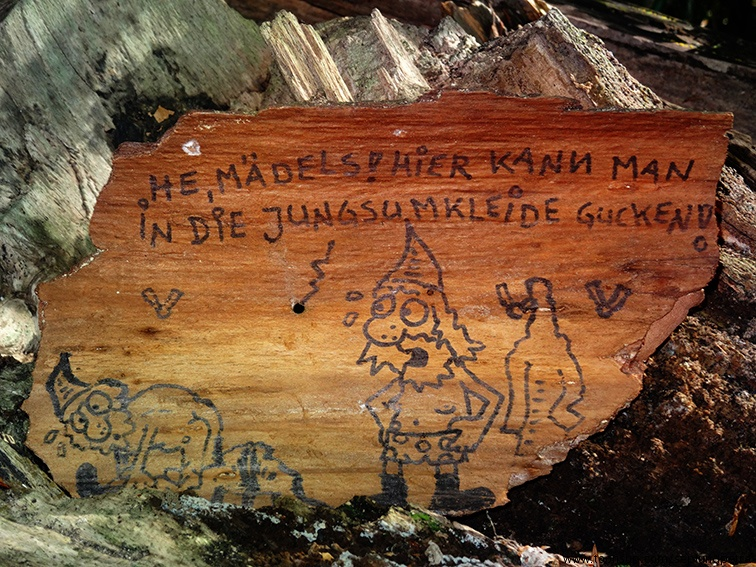 HE, MÄDELS! HIER KANN MAN
IN DIE JUNGSUMKLEIDE GUCKEN!